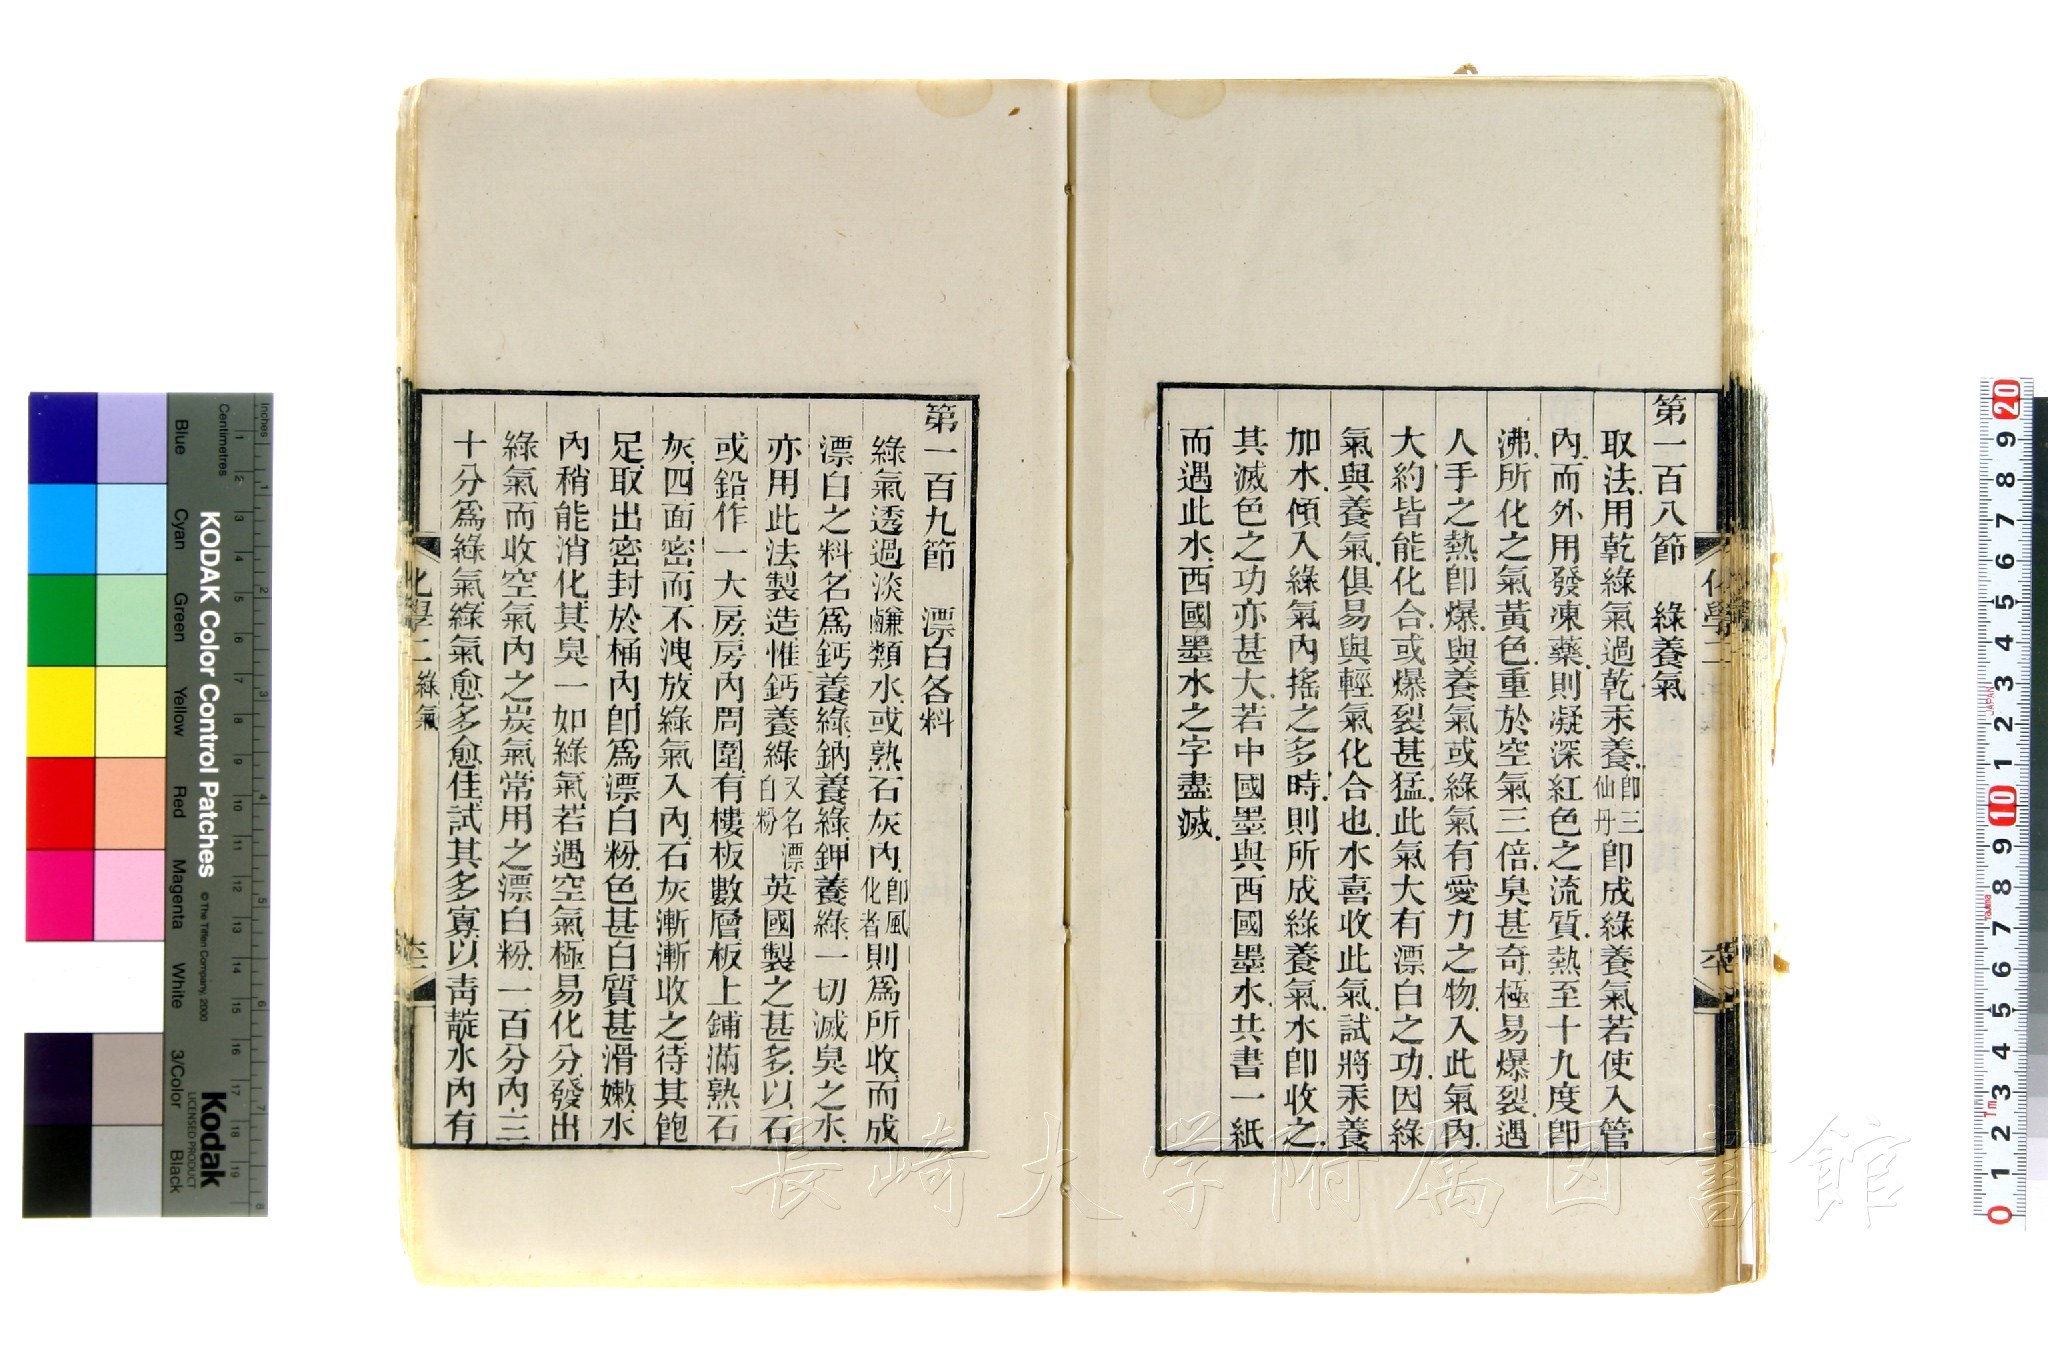 第一百八節　綠養氣
取法、用乾綠氣過乾汞養、卽三仙丹卽成綠養氣、若使入管
內、而外用發凍藥、則凝深紅色之流質、熱至十九度卽
沸、所化之氣黃色、重於空氣三倍、臭甚奇、極易爆裂、遇
人手之熱卽爆、與養氣或綠氣有愛力之物、入此氣內、
大約皆能化合、或爆裂甚猛、此氣大有漂白之功、因綠
氣與養氣、俱易與輕氣化合也、水喜收此氣、試將汞養
加水、傾入綠氣內、搖之多時、則所成綠養氣、水卽收之、
其滅色之功亦甚大、若中國墨與西國墨水、共書一紙
而遇此水、西國墨水之字盡滅、
第一百九節　漂白各料
綠氣透過淡鹻類水、或熟石灰內、卽風化者則爲所收、而成
漂白之料、名爲鈣養綠、鈉養綠、鉀養綠、一切滅臭之水、
亦用此法製造、惟鈣養綠又名漂白粉英國製之甚多、以石
或鉛作一大房、房內周圍有樓板數層、板上鋪滿熟石
灰、四面密而不洩、放綠氣入內、石灰漸漸收之、待其飽
足、取出密封於桶內、卽爲漂白粉、色甚白、質甚滑嫩、水
內稍能消化、其臭一如綠氣、若遇空氣、極易化分、發出
綠氣而收空氣內之炭氣、常用之漂白粉、一百分內、三
十分爲綠氣、綠氣愈多愈佳、試其多寡、以靑靛水內有
化學二
綠氣
化學二
長崎大学附属図書館
KODAK Color Control Patches
© The Tiffen Company, 2000
Kodak
LICENSED PRODUCT
Inches
Centimetres
Blue
Cyan
Green
Yellow
Red
Magenta
White
3/Color
Black
JAPAN